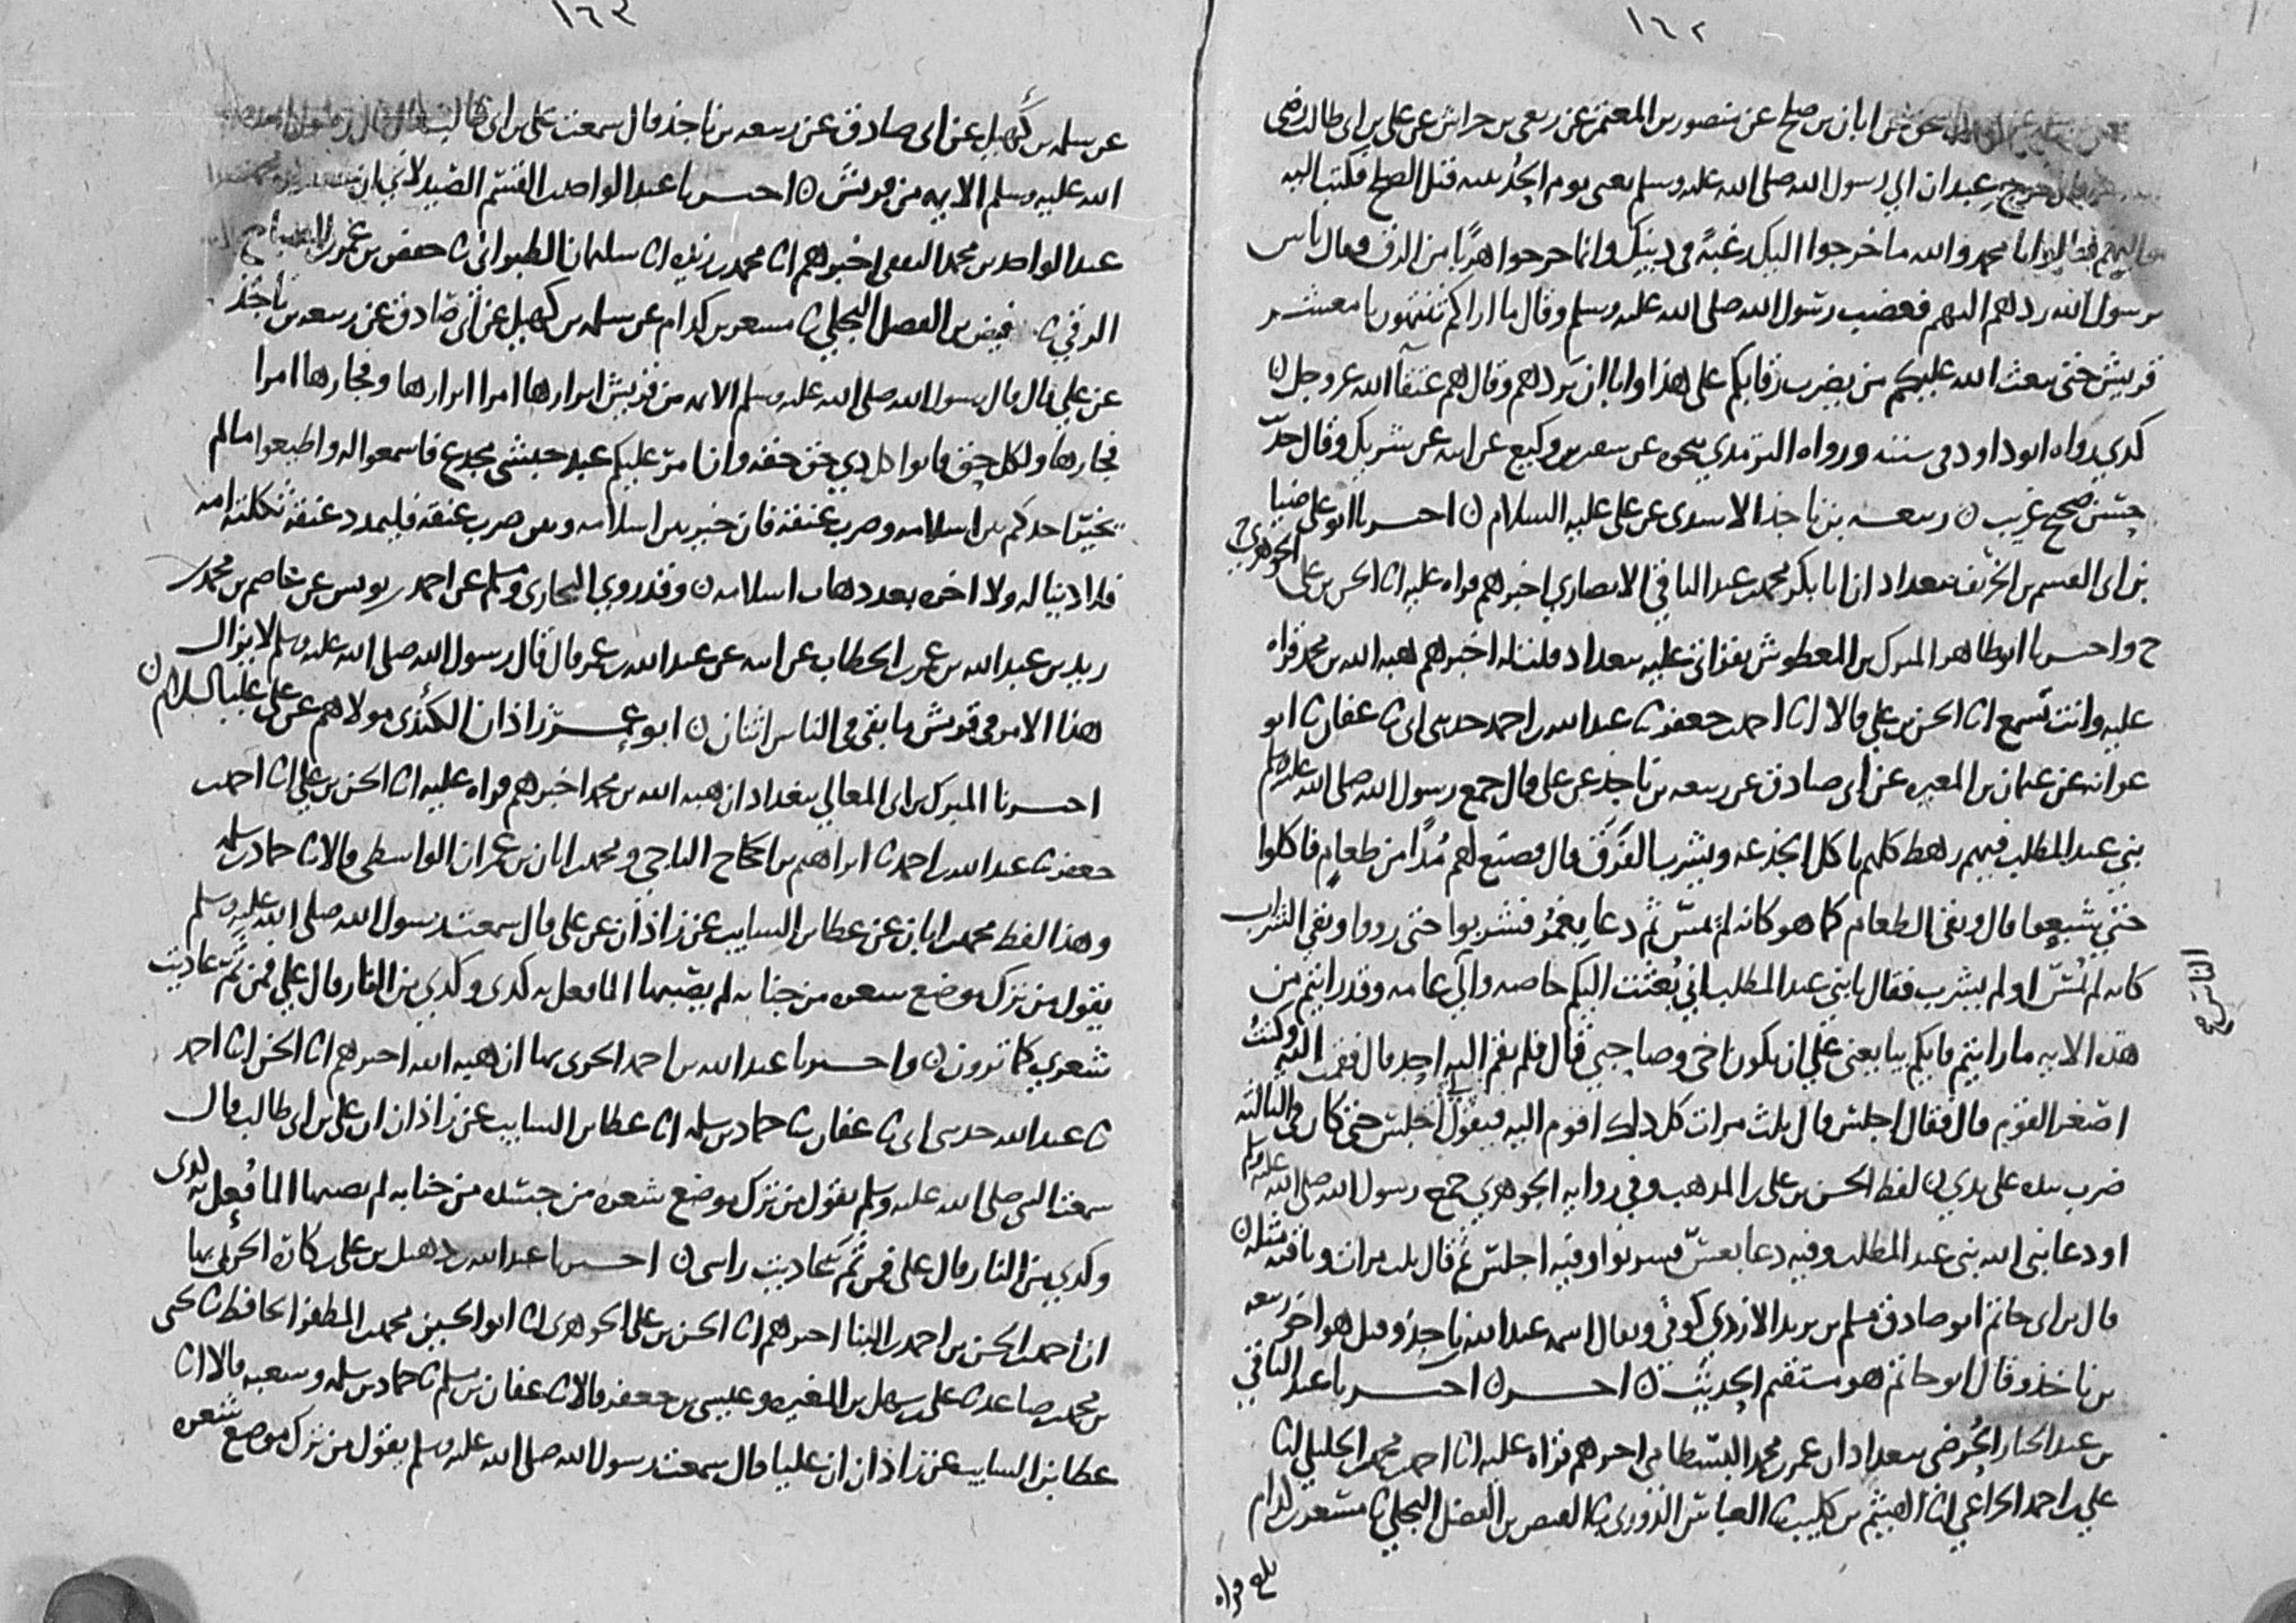 ١٦٢
عن ابان بن صلح عن منصور بن المعتمر عن ربعي بن حراش عن علي بن ابي طالب رضي
قال خرج عبدان الي رسول الله صلى الله عليه وسلم يعني يوم الحديبيه قبل الصلح فكتب اليه
مواليهم فقالوا يا محمد والله ما خرجوا اليك رغبة في دينك وانما خرجوا هربا من الرق فقال ناس
يرسول الله ردهم اليهم فغضب رسول الله صلى الله عليه وسلم وقال ما اراكم تنتهون يا معشر
قريش حتى يبعث الله عليكم من يضرب رقابكم على هذا وابا ان يردهم وقال هم عتقآ الله عز وجل ن
كدي رواه ابو داود في سننه ورواه الترمدي بنحوه عن سفين بن وكيع عن ابيه عن شريك وقال حد
حسن صحيح غريب ن ربيعه بن ناجد الاسدي عن علي عليه السلام ن اخبرنا ابو علي ضيا
بن ابي القسم بن الخريف ببغداد ان ابا بكر محمد بن عبد الباقي الانصاري اخبرهم قراه عليه انا الحسن بن علي
الجوهري ح
ح واخبرنا ابو طاهر المبرك بن المعطوش بقراتي عليه ببغداد قلت له اخبركم هبه الله بن محمد قراه
عليه وانت تسمع انا الحسن بن علي قالا انا احمد بن جعفر ثنا عبد الله بن احمد حدثني ابي ثنا عفان ثنا ابو
عوانه عن عثمان بن المغيره عن ابي صادق عن ربيعه بن ناجد عن علي قال جمع رسول الله صلى الله عليه وسلم
بني عبد المطلب فيهم رهط كلهم ياكل الجذعه ويشرب الفرق قال فصنع لهم مدا من طعام فاكلوا
حتى شبعوا قال وبقي الطعام كما هو كانه لم يمس ثم دعا بغمر فشربوا حتى رووا وبقي الشراب
كانه لم يمس او لم يشرب فقال يا بني عبد المطلب اني بعثت اليكم خاصه والي الناس عامه وقد رايتم من
هذه الايه ما رايتم فايكم يبايعني علي ان يكون اخي وصاحبي قال فلم يقم اليه احد قال فقمت اليه وكنت
اصغر القوم قال فقال اجلس قال ثلث مرات كل دلك اقوم اليه فيقول لي اجلس حتى كان في الثالثه
ضرب بيده على يدي ن لفظ الحسن بن علي بن المدهب وفي روايه الجوهري جمع رسول الله صلى الله عليه وسلم
او دعا نبي الله بني عبد المطلب وفيه دعا بعس فشربوا وفيه اجلس ثم قال ثلث مرات وباقيه مثله ن
قال بن ابي حاتم ابو صادق مسلم بن يزيد الازدي كوفي ويقال اسمه عبد الله بن ناجد وقيل هو اخو ربيعه
بن ناجد وقال ابو حاتم هو مستقيم الحديث ن اخر ن اخبرنا عبد الباقي
بن عبد الجبار الحرضي ببغداد ان عمر بن محمد البسطامي اخبرهم قراه عليه انا احمد بن محمد الخليلي انا
علي بن احمد الخزاعي انا الهيثم بن كليب ثنا العباس الدوري ثنا الفيض بن الفضل البجلي ثنا مسعر بن كدام
بلغ قراه
الناس ح
١٦٣
عن سلمه بن كهيل عن ابي صادق عن ربيعه بن ناجد قال سمعت علي بن ابي طالب قال قال رسول
الله عليه وسلم الايمه من قريش ن اخبرنا عبد الواحد بن القسم الصيدلاني ان
عبد الواحد بن محمد اخبرهم انا محمد بن ريذه انا سليمان الطبراني ثنا حفص بن عمر بن الصباح
الرقي ثنا فيض بن الفضل البجلي ثنا مسعر بن كدام عن سلمه بن كهيل عن ابي صادق عن ربيعه بن ناجد
عن علي قال قال رسول الله صلى الله عليه وسلم الايمه من قريش ابرارها امرا ابرارها وفجارها امرا
فجارها ولكل حق فاتوا كل دي حق حقه وان امر عليكم عبد حبشي مجدع فاسمعوا له واطيعوا ما لم
يخير احدكم بين اسلامه وضرب عنقه فان خير بين اسلامه وبين ضرب عنقه فليمدد عنقه ثكلته امه
فلا دنيا له ولا اخره بعد دهاب اسلامه ن وقد روي البخاري ومسلم عن احمد بن يونس عن عاصم بن محمد بن
زيد بن عبد الله بن عمر بن الخطاب عن ابيه عن عبد الله بن عمر قال قال رسول الله صلى الله عليه وسلم لا يزال
هذا الامر في قريش ما بقي في الناس اثنان ن ابو عمر زاذان الكندي مولاهم عن علي عليه السلام ن
اخبرنا المبرك بن ابي المعالي ببغداد ان هبه الله بن محمد اخبرهم قراه عليه انا الحسن بن علي انا احمد بن
جعفر ثنا عبد الله بن احمد ثنا ابراهيم بن الحجاج الناجي ومحمد بن ابان بن عمران الواسطي قالا ثنا حماد بن سلمه
وهذا لفظ محمد بن ابان عن عطا بن السايب عن زاذان عن علي قال سمعت رسول الله صلى الله عليه وسلم
يقول من ترك موضع شعره من جنابه لم يصبها الما فعل به كدى وكدي من النار قال علي فمن ثم عاديت
شعري كما ترون ن واخبرنا عبد الله بن احمد الحربي بها ان هبه الله اخبرهم انا الحسن انا احمد
ثنا عبد الله حدثني ابي ثنا عفان ثنا حماد بن سلمه انا عطا بن السايب عن زاذان ان علي بن ابي طالب قال
سمعت النبي صلى الله عليه وسلم يقول من ترك موضع شعره من جسده من جنابه لم يصبها الما فعل به كدى
وكدي من النار قال علي فمن ثم عاديت راسي ن اخبرنا عبد الله بن دهبل بن علي بن كاره الحربي بها
ان احمد بن الحسن بن احمد بن البنا اخبرهم انا الحسن بن علي الجوهري انا ابو الحسين محمد بن المظفر الحافظ ثنا يحيى
بن محمد بن صاعد ثنا علي بن سهل بن المغيره وعيسى بن جعفر قالا ثنا عفان بن مسلم ثنا حماد بن سلمه وشعبه قالا انا
عطا بن السايب عن زاذان ان عليا قال سمعت رسول الله صلى الله عليه وسلم يقول من ترك موضع شعره